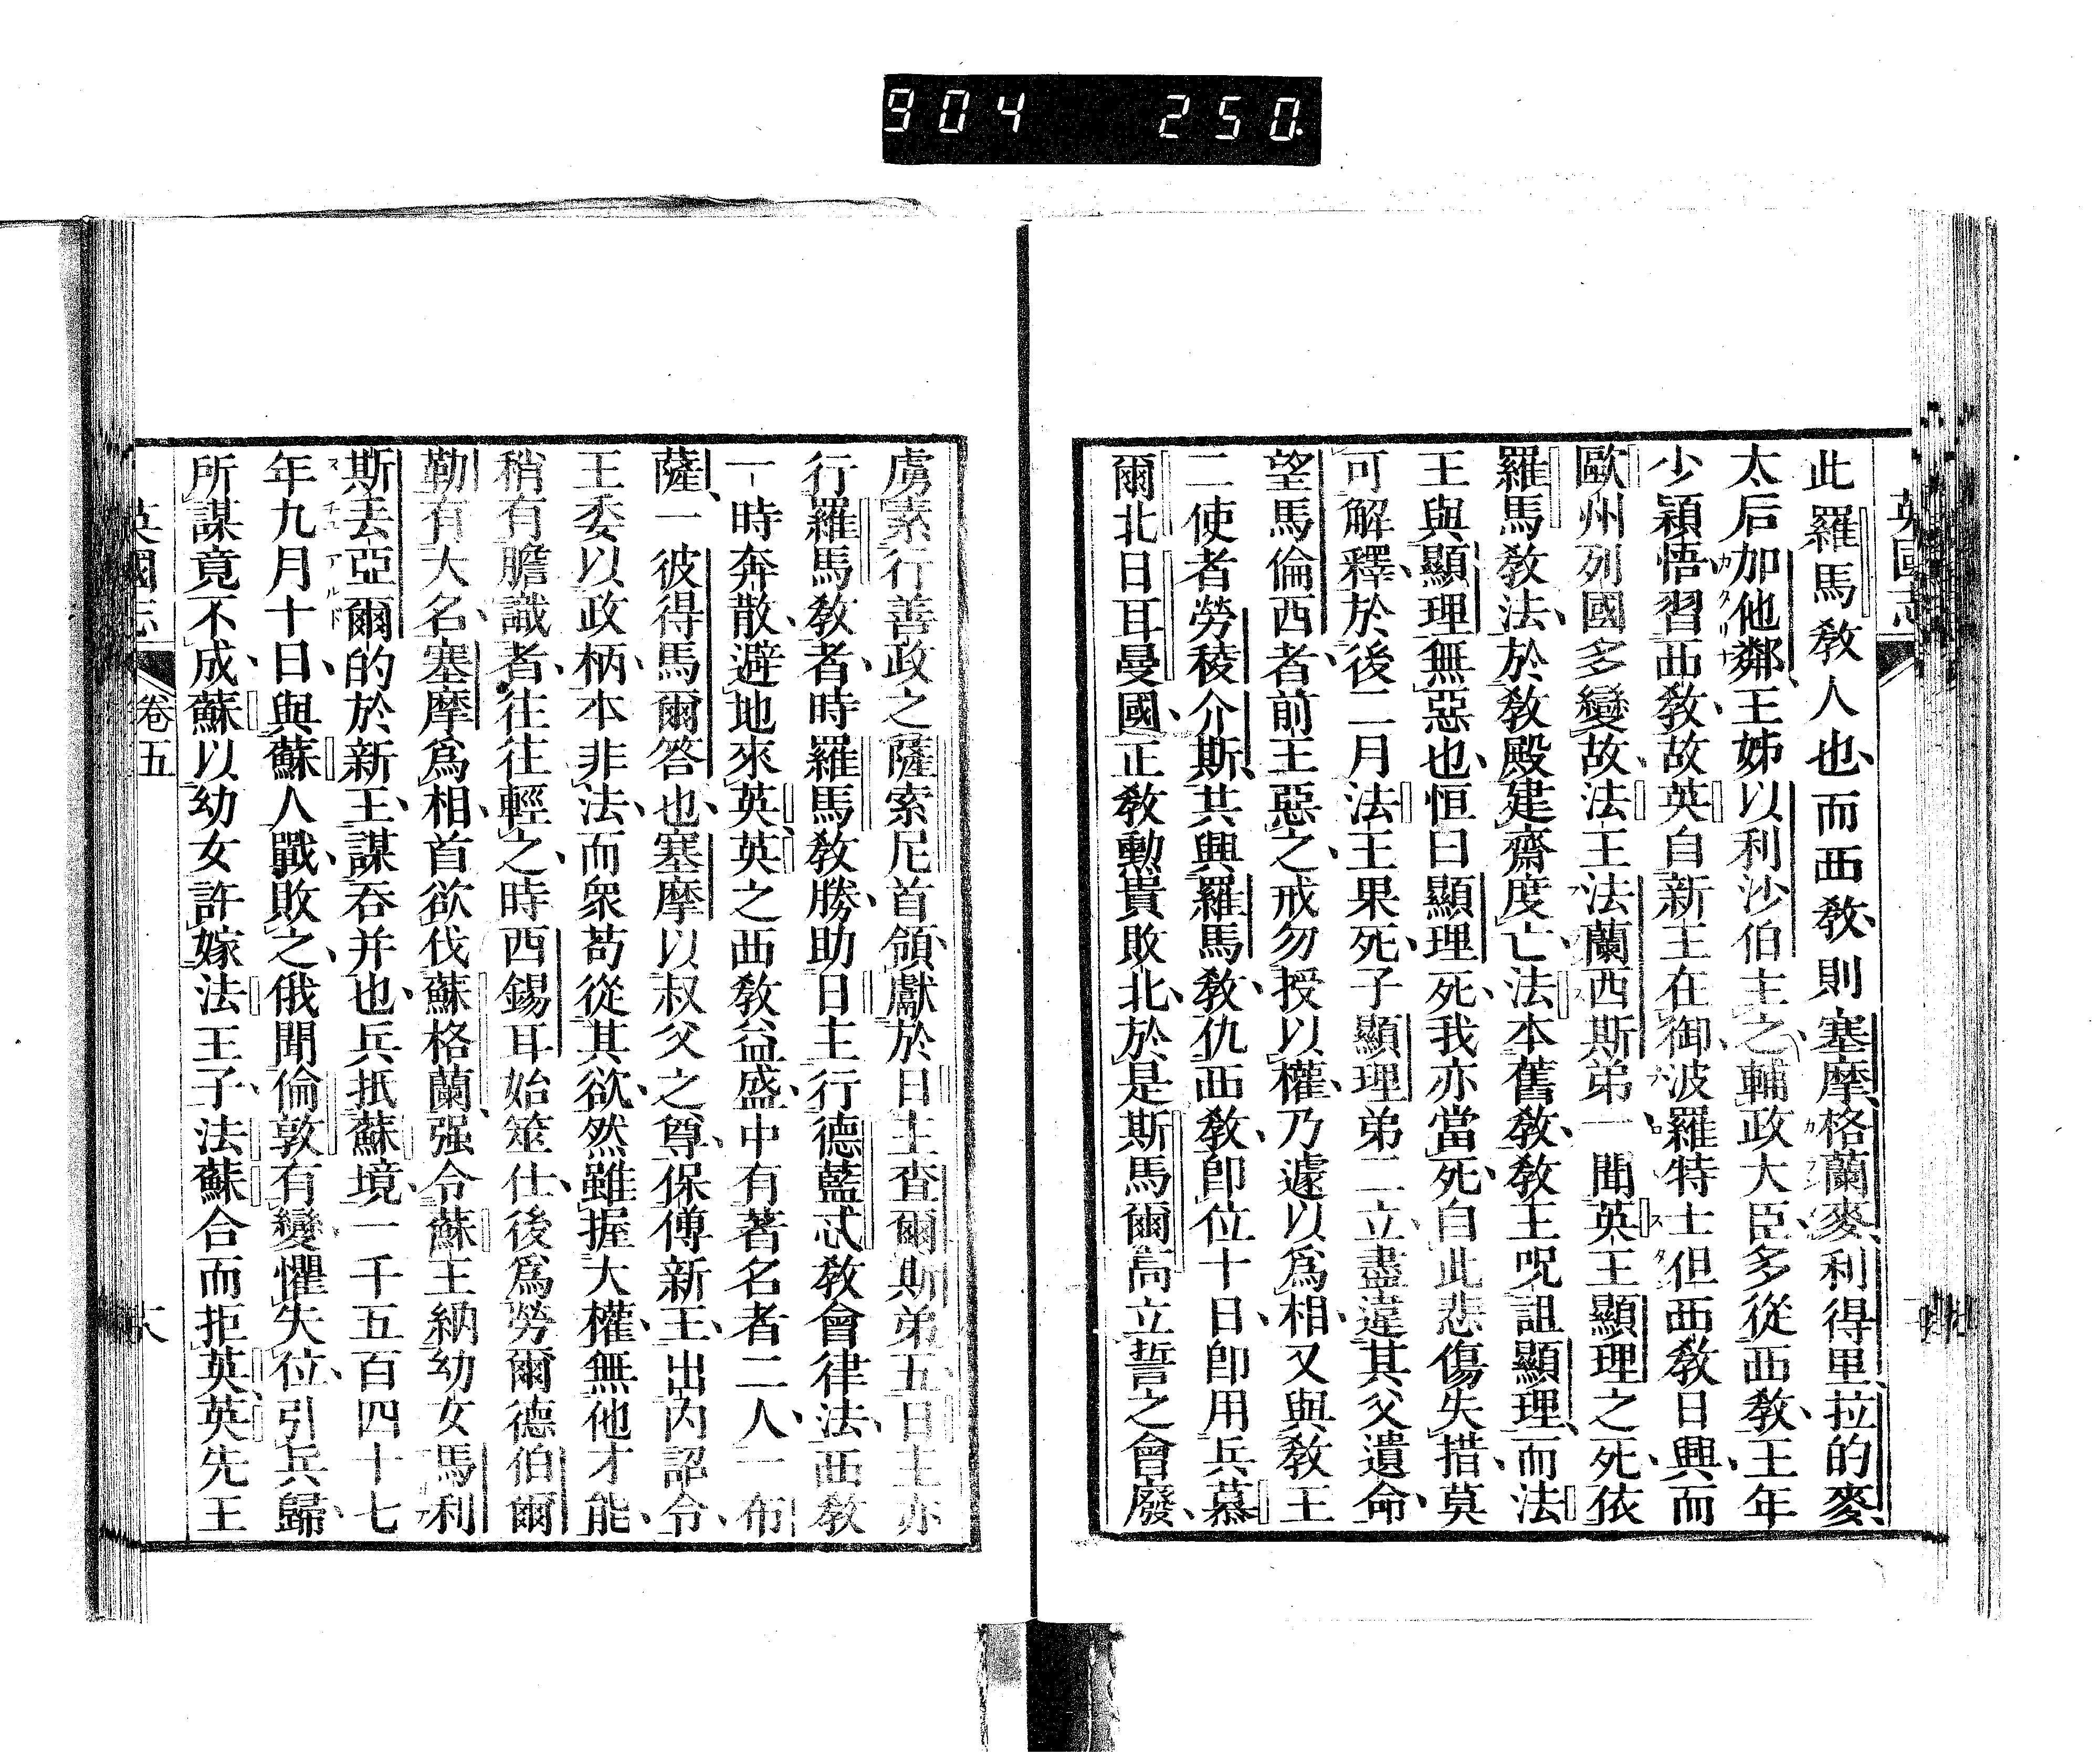 904 250
英國志
此羅馬敎人也、而西敎、則塞摩、格蘭麥、利得里、拉的麥、
太后加他鄰、王姊以利沙伯主之、輔政大臣、多從西敎、王年
少穎悟、習西敎、故英自新王在御、波羅特士但西敎日興、而
歐州列國多變、故法王法蘭西斯弟一聞英王顯理之死、依
羅馬敎法、於敎殿建齋度亡、法本舊敎、敎王呪詛顯理、而法
王與顯理無惡也、恒曰顯理死、我亦當死、自此悲傷失措、莫
可解釋、於後二月法王果死、子顯理弟二立、盡違其父遺命、
望馬倫西者、前王惡之、戒勿授以權、乃遽以爲相、又與敎王
二使者勞稜介斯、共興羅馬敎、仇西敎、卽位十日、卽用兵慕
爾北日耳曼國、正敎勳貴敗北、於是斯馬爾高立誓之會廢、
虜素行善政之薩索尼首領、獻於日主查爾斯弟五、日主亦
行羅馬敎者、時羅馬敎勝、助日主行德藍忒敎會律法、西敎
一時奔散、避地來英、英之西敎益盛、中有著名者二人、一布
薩、一彼得馬爾答也、塞摩以叔父之尊、保傅新王、出內詔令、
王委以政柄、本非法、而衆苟從其欲、然雖握大權、無他才能、
稍有膽識者、往往輕之、時西錫耳始筮仕、後爲勞爾德伯爾
勒有大名、塞摩爲相、首欲伐蘇格蘭、强令蘇王納幼女馬利
斯丟亞爾的於新王、謀吞并也、兵抵蘇境、一千五百四十七
年九月十日、與蘇人戰、敗之、俄聞倫敦有變、懼失位、引兵歸、
所謀竟不成、蘇以幼女許嫁法王子、法蘇合而拒英、英先王
英國志
卷五